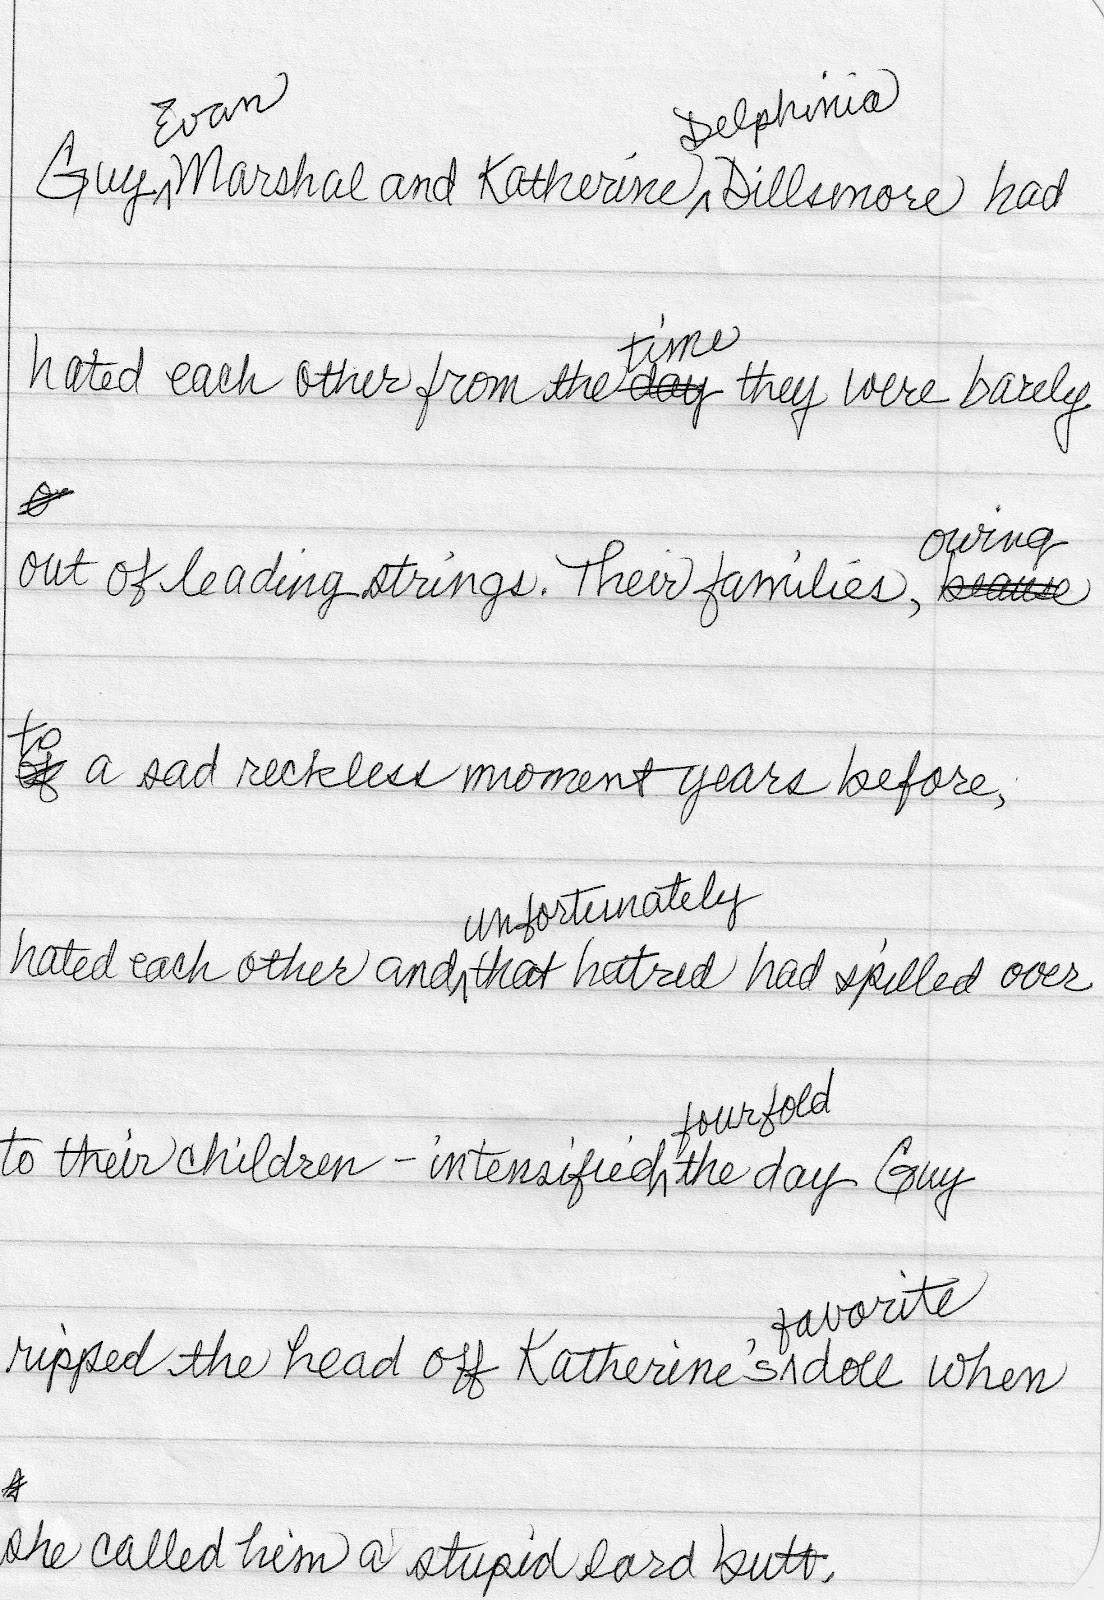 Evan Delphinia
Guy, Marshal and Katherine, Dillsmore had
time
hated each other from the day they were barely
o
out of leading strings. Their families, because
owing
to
of a sad reckless moment years before,
unfortunately
hated each other and, that hatred had spilled over
fourfold
to their children - intensified, the day Guy
favorite
ripped the head off Katherine's doll when
she called him a stupid lard butt.